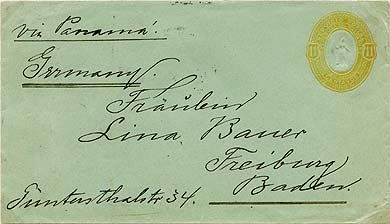 via Panamá.
Germany.
Fräulein
Lina Bauer
Freiburg
Baden.
Güntersthalstr 34.
11 11